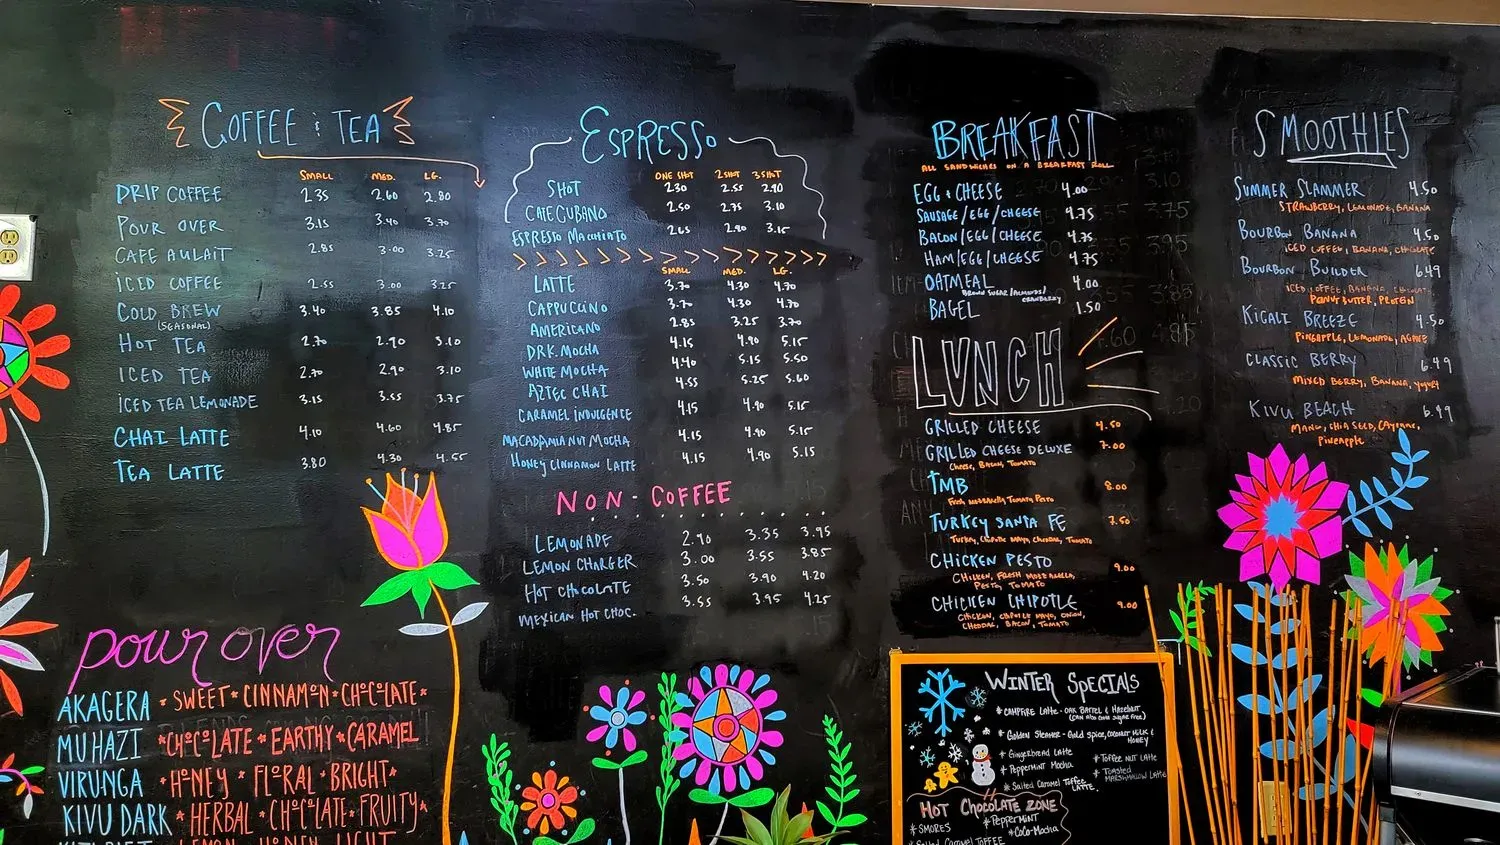 COFFEE & TEA
SMALL MED. LG.
DRIP COFFEE 2.35 2.60 2.80
POUR OVER 3.15 3.40 3.70
CAFE AULAIT 2.85 3.00 3.25
ICED COFFEE 2.55 3.00 3.25
COLD BREW 3.40 3.85 4.10
(SEASONAL)
HOT TEA 2.70 2.90 3.10
ICED TEA 2.70 2.90 3.10
ICED TEA LEMONADE 3.15 3.55 3.75
CHAI LATTE 4.10 4.60 4.85
TEA LATTE 3.80 4.30 4.55
pour over
AKAGERA * SWEET * CINNAMON * CHOCOLATE *
MUHAZI * CHOCOLATE * EARTHY * CARAMEL
VIRUNGA * HONEY * FLORAL * BRIGHT *
KIVU DARK * HERBAL * CHOCOLATE * FRUITY *
LEMON HONEY LIGHT
ESPRESSO
ONE SHOT 2 SHOT 3 SHOT
SHOT 2.30 2.55 2.90
CAFE CUBANO 2.50 2.75 3.10
ESPRESSO MACCHIATO 2.65 2.90 3.15
SMALL MED. LG.
LATTE 3.70 4.30 4.70
CAPPUCCINO 3.70 4.30 4.70
AMERICANO 2.85 3.25 3.70
DRK. MOCHA 4.15 4.90 5.15
WHITE MOCHA 4.40 5.15 5.50
AZTEC CHAI 4.55 5.25 5.60
CARAMEL INDULGENCE 4.15 4.90 5.15
MACADAMIA NUT MOCHA 4.15 4.90 5.15
HONEY CINNAMON LATTE 4.15 4.90 5.15
NON-COFFEE
LEMONADE 2.90 3.35 3.95
LEMON CHARGER 3.00 3.55 3.85
HOT CHOCOLATE 3.50 3.90 4.20
MEXICAN HOT CHOC. 3.55 3.95 4.25
BREAKFAST
ALL SANDWICHES ON A BREAKFAST ROLL
EGG + CHEESE 4.00
SAUSAGE/EGG/CHEESE 4.75
BACON/EGG/CHEESE 4.75
HAM/EGG/CHEESE 4.75
OATMEAL 4.00
BROWN SUGAR/ALMONDS/
CRANBERRY
BAGEL 1.50
LUNCH
GRILLED CHEESE 4.50
GRILLED CHEESE DELUXE 7.00
CHEESE, BACON, TOMATO
TMB 8.00
FRESH MOZZARELLA, TOMATO, PESTO
TURKEY SANTA FE 7.50
TURKEY, CHIPOTLE MAYO, CHEDDAR, TOMATO
CHICKEN PESTO 9.00
CHICKEN, FRESH MOZZARELLA,
PESTO, TOMATO
CHICKEN CHIPOTLE 9.00
CHICKEN, CHIPOTLE MAYO, ONION,
CHEDDAR, BACON, TOMATO
SMOOTHIES
SUMMER SLAMMER 4.50
STRAWBERRY, LEMONADE, BANANA
BOURBON BANANA 4.50
ICED COFFEE, BANANA, CHOCOLATE
BOURBON BUILDER 6.49
ICED COFFEE, BANANA, CHOCOLATE
PEANUT BUTTER, PROTEIN
KIGALI BREEZE 4.50
PINEAPPLE, LEMONADE, AGAVE
CLASSIC BERRY 6.49
MIXED BERRY, BANANA, YOGURT
KIVU BEACH 6.49
MANGO, CHIA SEED, CAYENNE,
PINEAPPLE
WINTER SPECIALS
* CAMPFIRE LATTE - OAK BARREL & HAZELNUT
(CAN ALSO COME SUGAR FREE)
* Golden Steamer - Gold spice, coconut milk &
HONEY
* Gingerbread Latte
* Toffee Nut Latte
* Peppermint Mocha
* Toasted
MARSHMALLOW Latte
* Salted Caramel Toffee
LATTE
HOT CHOCOLATE ZONE
* SMORES
* PEPPERMINT
* COCO-Mocha
Salted Caramel TOFFEE